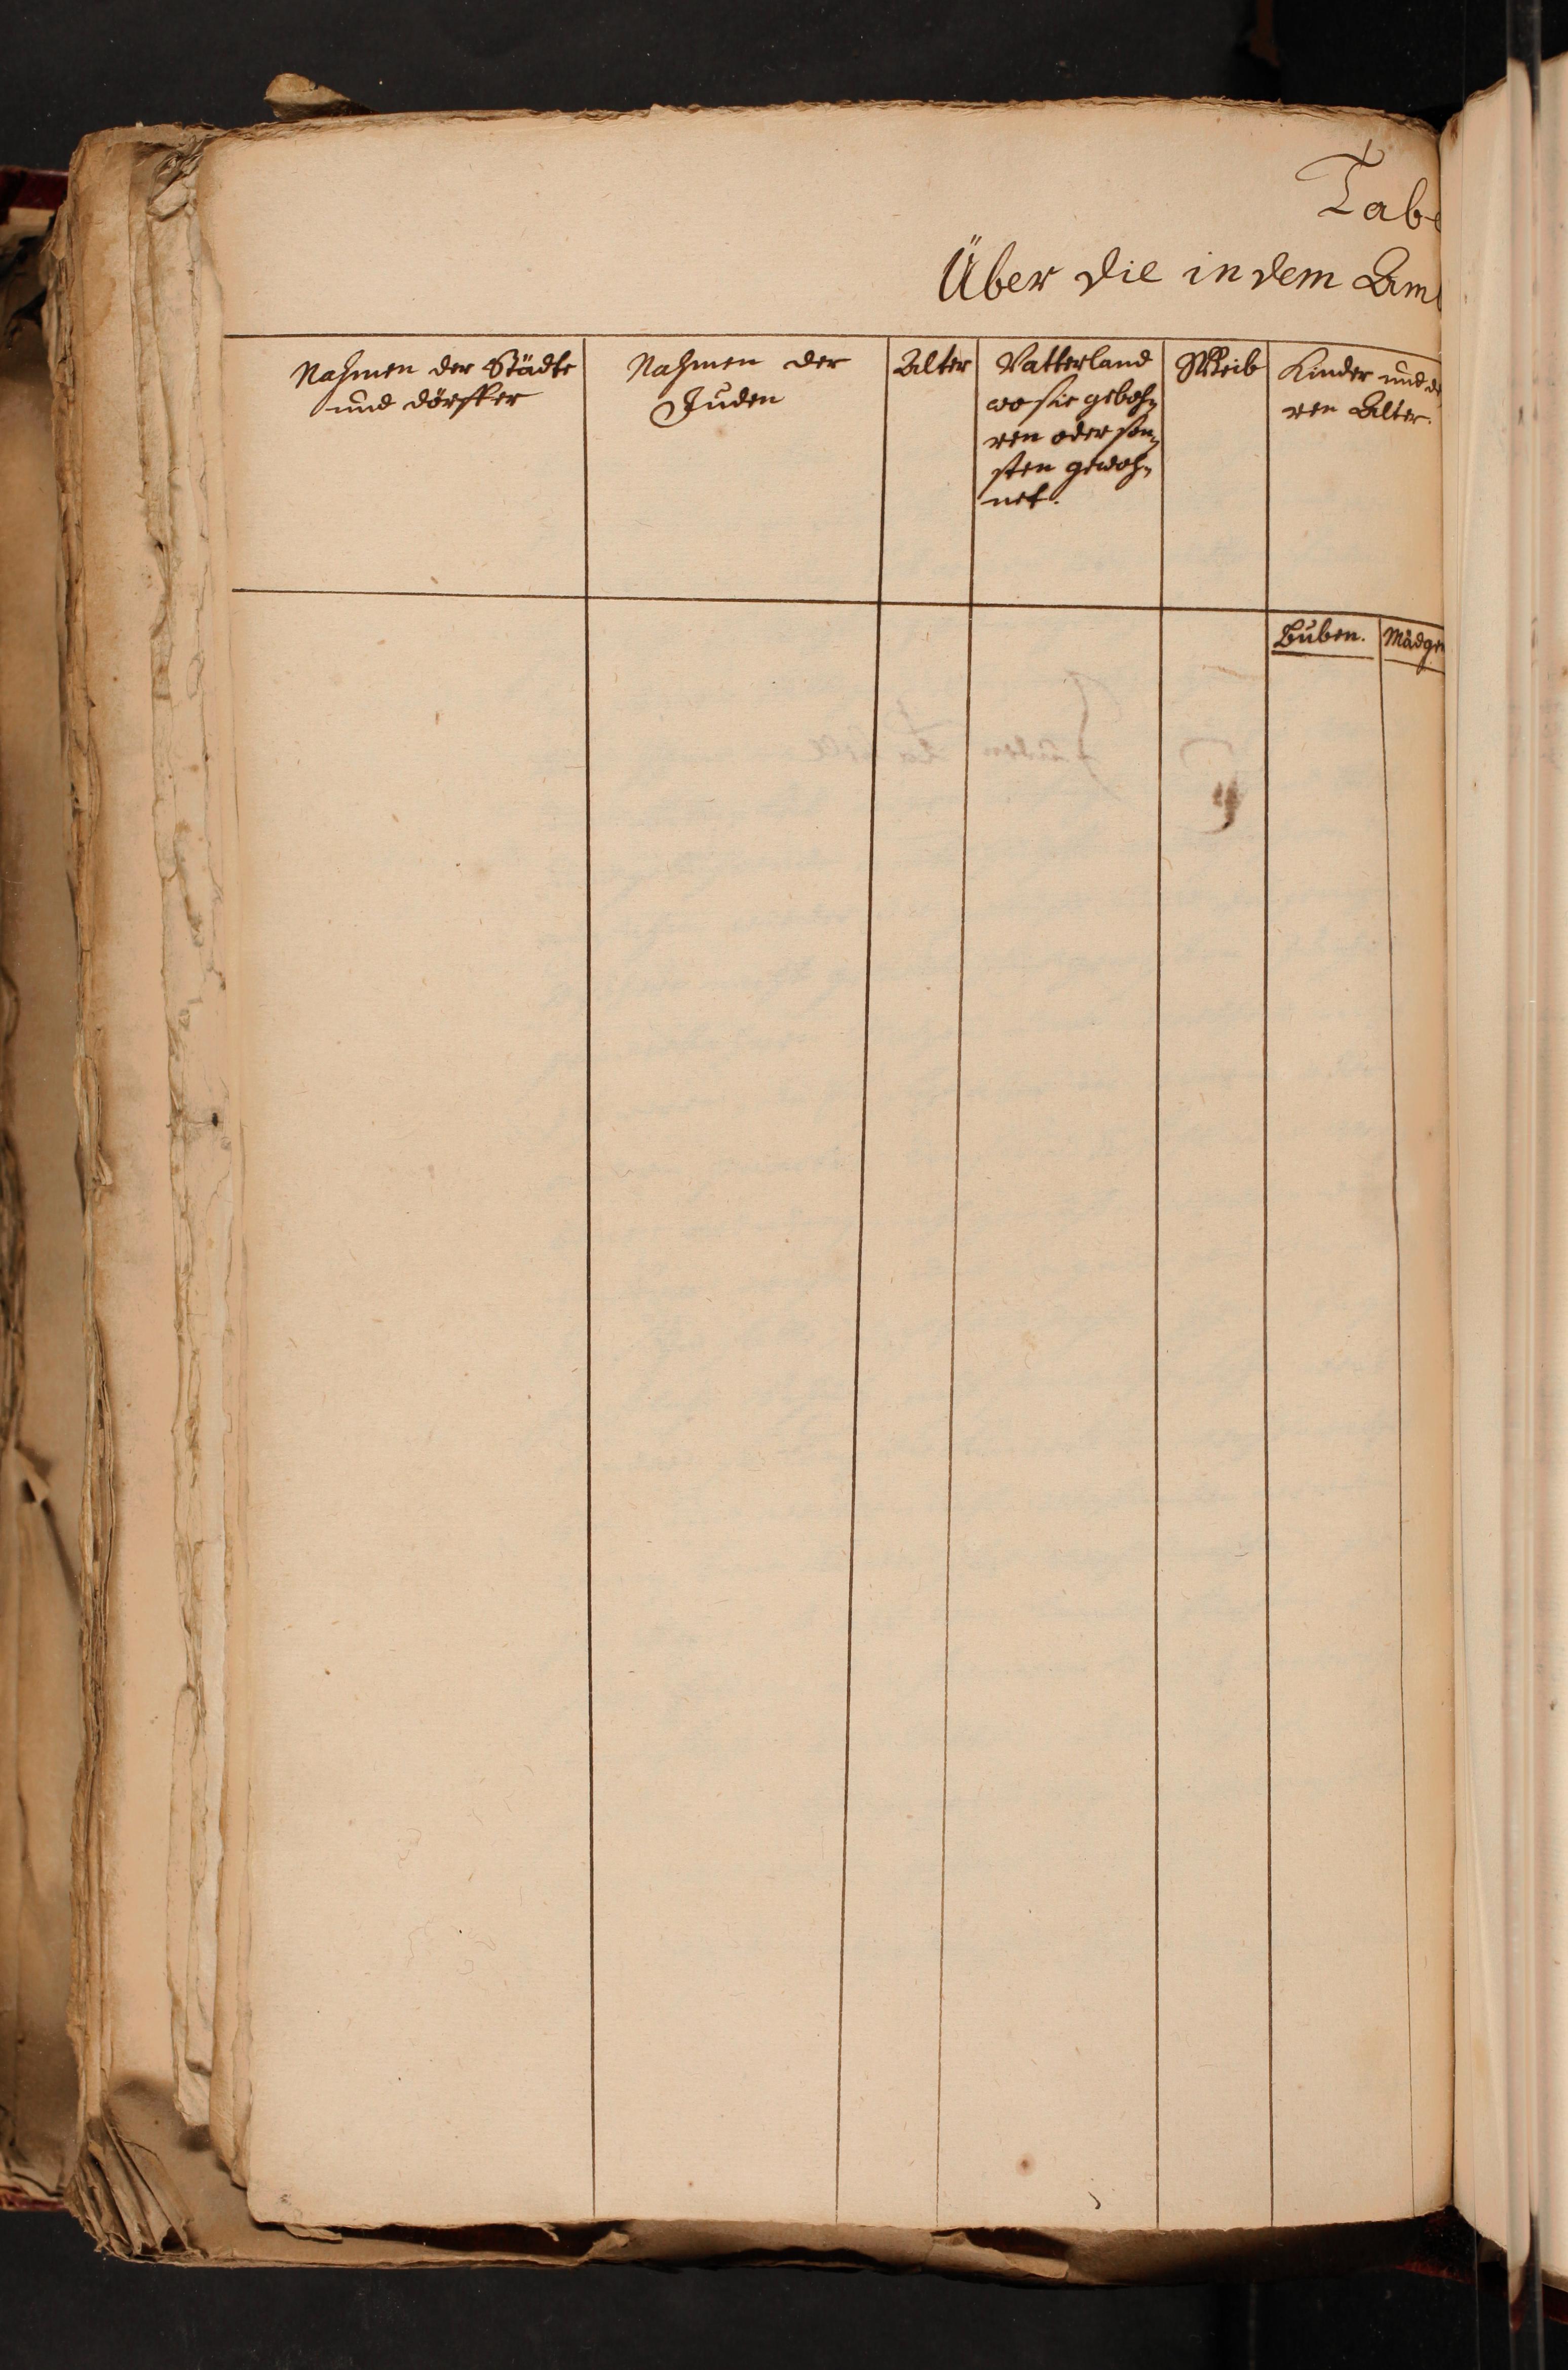 Tabe
Über die in dem Amt
Nahmen der Städte
und dörffer
Nahmen der
Juden
Alter
Vatterland
wo sie geboh-
ren oder son-
sten gewoh-
net.
Weib
Kinder und de
ren Alter.
Buben.
Mädgen